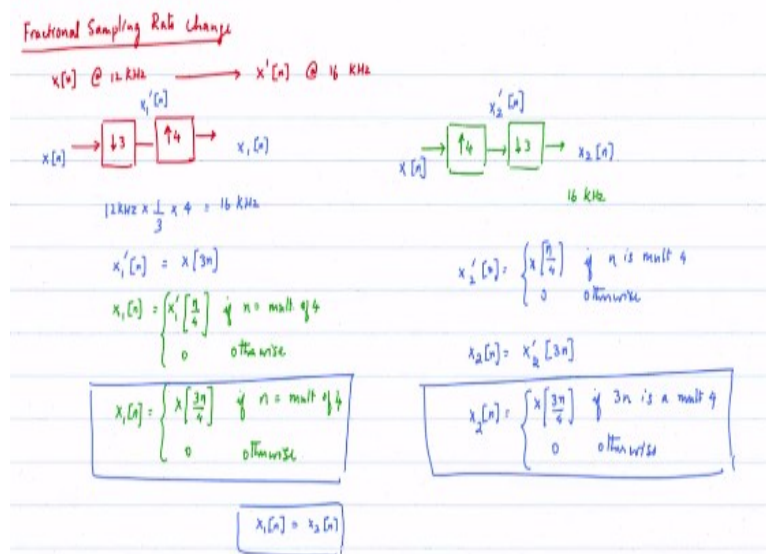 Fractional Sampling Rate Change
x[n] @ 12 KHz → x'[n] @ 16 KHz
x₁'[n]
x[n] → ↓3 → ↑4 → x₁[n]
12KHz x 1/3 x 4 = 16 KHz
x₁'[n] = x[3n]
x₁[n] = { x₁'[n/4] if n = mult of 4
0 otherwise
x₁[n] = { x[3n/4] if n = mult of 4
0 otherwise
x₂'[n]
x[n] → ↑4 → ↓3 → x₂[n]
16 KHz
x₂'[n] = { x[n/4] if n is mult 4
0 otherwise
x₂[n] = x₂'[3n]
x₂[n] = { x[3n/4] if 3n is a mult 4
0 otherwise
x₁[n] = x₂[n]